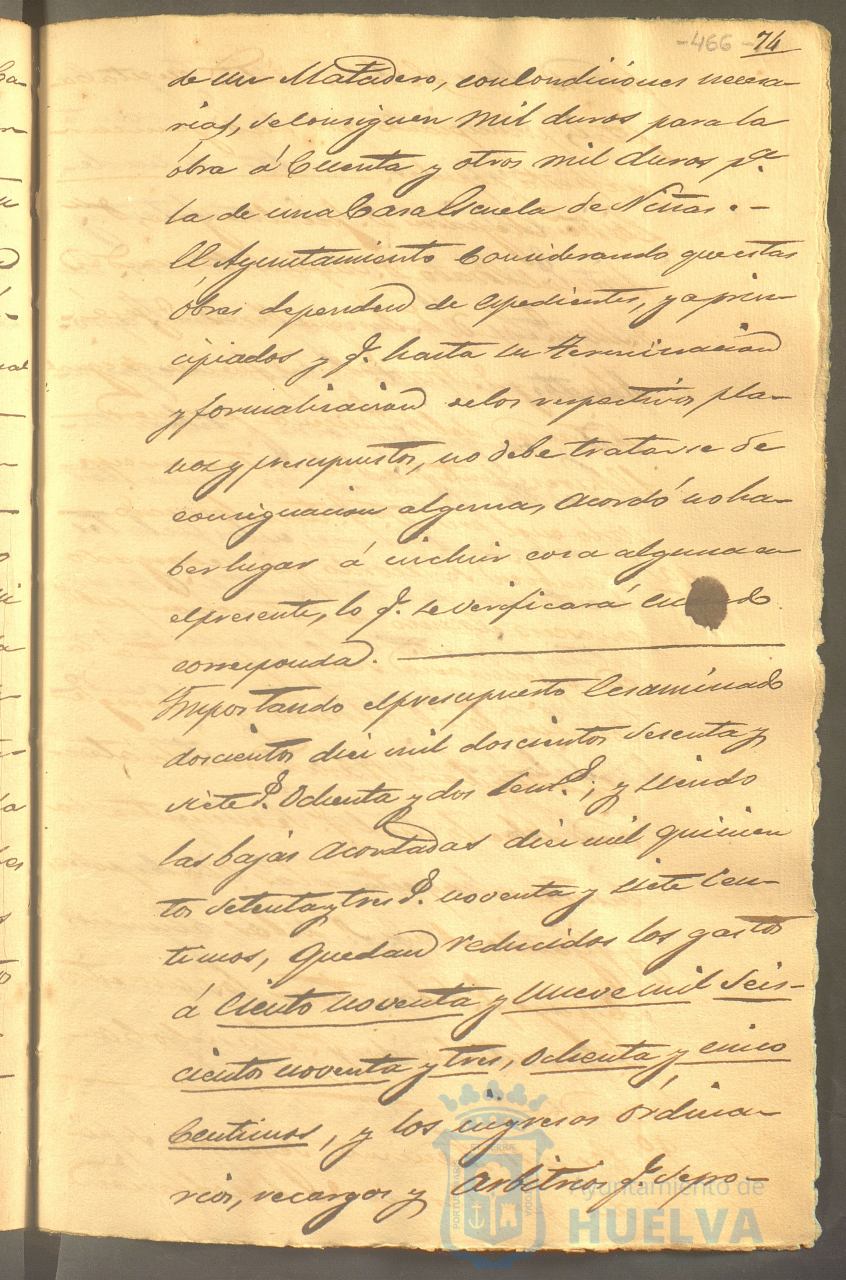 -466-
74
de un Matadero, con condiciones necesa-
rias, se consignen mil duros para la
obra á Cuenta y otros mil duros pª
la de una Casa Escuela de Niñas. -
El Ayuntamiento Considerando que estas
óbras dependen de espedientes, ya prin-
cipiados y q. hasta su terminacion
y formalizacion de los respectivos pla-
nos y presupuestos, no debe tratarse de
consignacion alguna, acordó no ha-
ber lugar á incluir cosa alguna en
el presente, lo q. se verificará cuando
corresponda.
Importando el presupuesto Ecsaminado
doscientos diez mil doscientos sesenta y
siete P. Ochenta y dos Cent.; y siendo
las bajas acordadas diez mil quinien
tos setenta y tres P. noventa y siete Cen-
timos, quedan reducidos los gastos
á Ciento noventa y nueve mil Seis-
cientos noventa y tres, Ochenta y cinco
Centimos, y los ingresos ordina-
rios, recargos y arbitrios q. se pro-
Ayuntamiento de
HUELVA